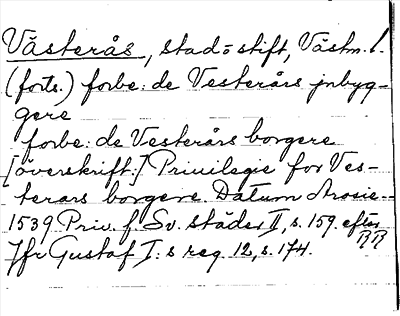 Västerås, stad o stift, Västm. l.
(forts.) forbe: de Vesterårs jnbyg-
gere
forbe: de Vesterårs borgere
[överskrift:] Privilegie for Ves-
terars borgere. Datum Arosie -
1539 Priv. f. Sv. städer II, s. 159. efter
RR
Jfr Gustaf I:s reg. 12, s. 174.